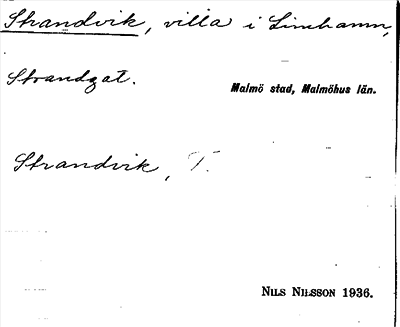 Strandvik, villa i Limhamn,
Strandgat.
Malmö stad, Malmöhus län.
Strandvik, T.
NILS NILSSON 1936.